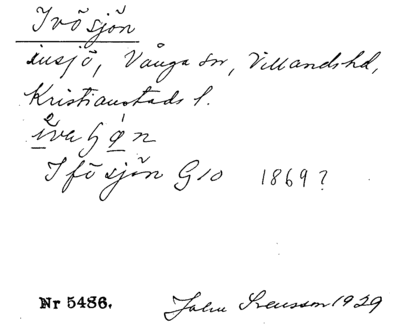 Ivösjön
insjö, Vånga sn, Villands hd,
Kristianstads l.
Ifösjön G10 1869?
Nr 5486. John Svensson 1929